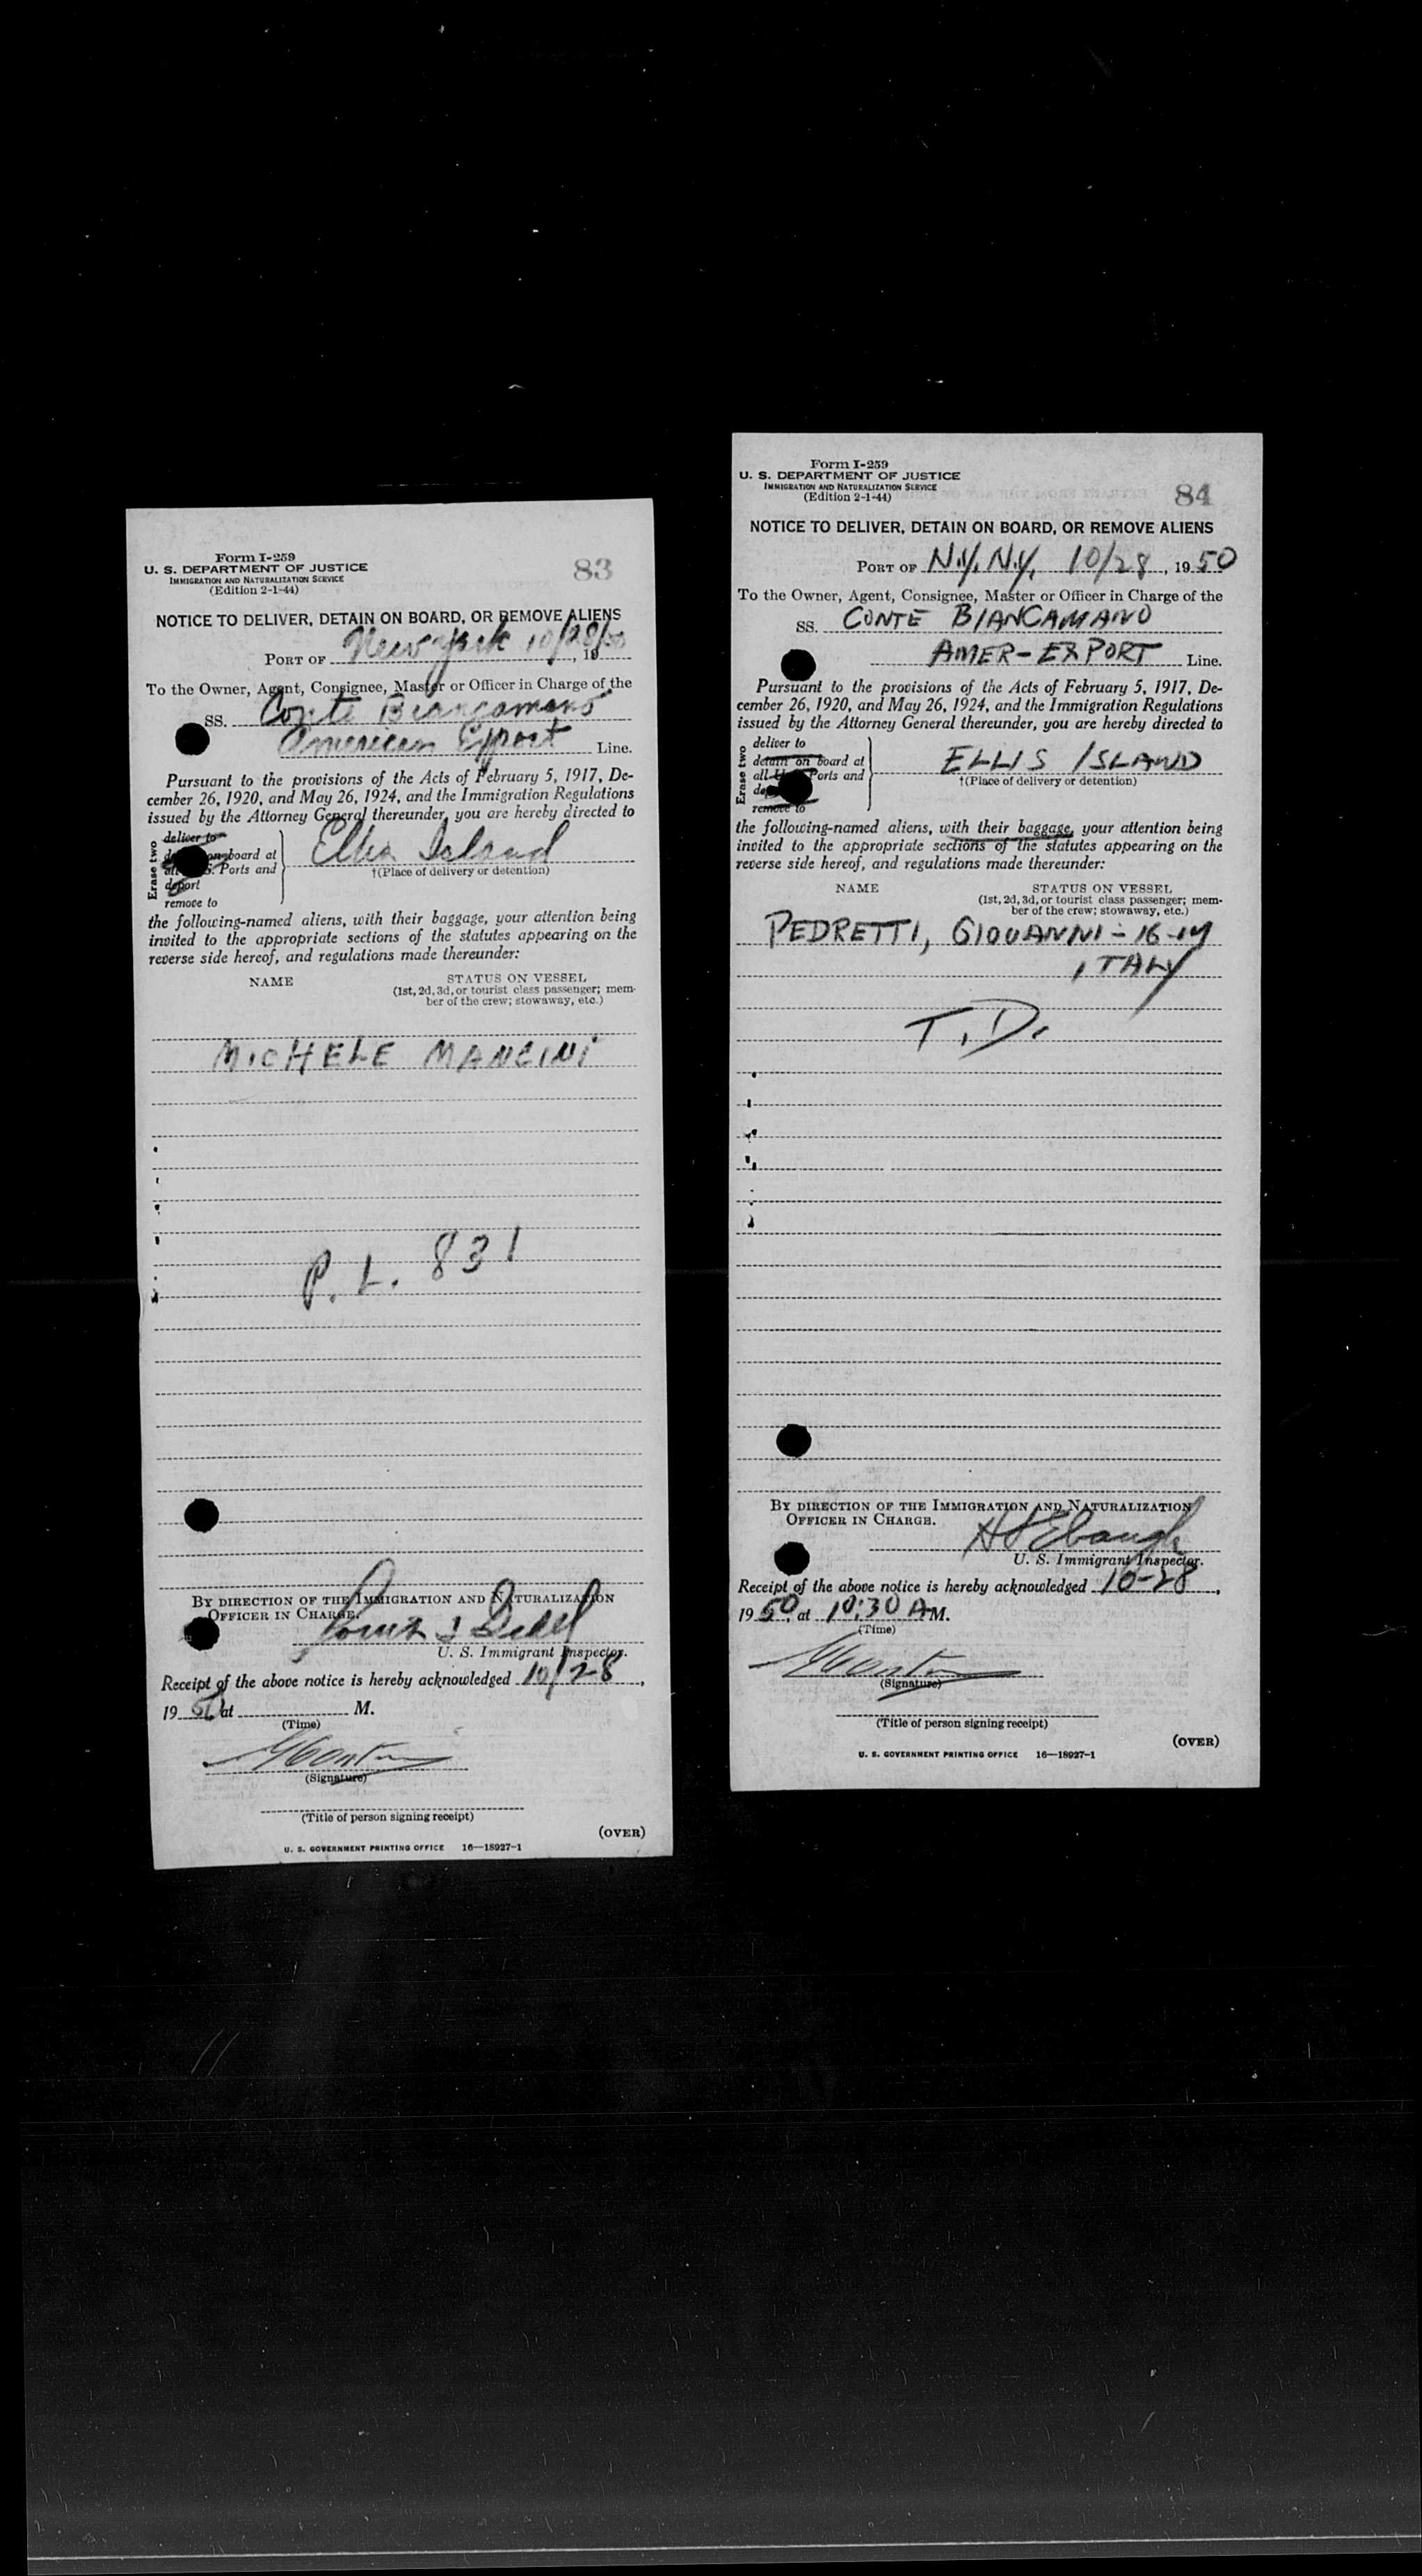 Form I-259
U. S. DEPARTMENT OF JUSTICE
IMMIGRATION AND NATURALIZATION SERVICE
(Edition 2-1-44)
83
NOTICE TO DELIVER, DETAIN ON BOARD, OR REMOVE ALIENS
PORT OF New York 10/28/50, 19
To the Owner, Agent, Consignee, Master or Officer in Charge of the
SS. Conte Biancamano
American Export Line.
Pursuant to the provisions of the Acts of February 5, 1917, De-
cember 26, 1920, and May 26, 1924, and the Immigration Regulations
issued by the Attorney General thereunder, you are hereby directed to
Erase two
deliver to
on board at
all U. S. Ports and
deport
remove to
Ellis Island
†(Place of delivery or detention)
the following-named aliens, with their baggage, your attention being
invited to the appropriate sections of the statutes appearing on the
reverse side hereof, and regulations made thereunder:
NAME STATUS ON VESSEL
(1st, 2d, 3d, or tourist class passenger; mem-
ber of the crew; stowaway, etc.)
MICHELE MANCINI
P. L. 831
BY DIRECTION OF THE IMMIGRATION AND NATURALIZATION
OFFICER IN CHARGE.
U. S. Immigrant Inspector.
Receipt of the above notice is hereby acknowledged 10/28,
19 50 at M.
(Time)
(Signature)
(Title of person signing receipt)
(OVER)
U. S. GOVERNMENT PRINTING OFFICE 16—18927-1
Form I-259
U. S. DEPARTMENT OF JUSTICE
IMMIGRATION AND NATURALIZATION SERVICE
(Edition 2-1-44)
84
NOTICE TO DELIVER, DETAIN ON BOARD, OR REMOVE ALIENS
PORT OF N.Y. N.Y. 10/28, 1950
To the Owner, Agent, Consignee, Master or Officer in Charge of the
SS. CONTE BIANCAMANO
AMER-EXPORT Line.
Pursuant to the provisions of the Acts of February 5, 1917, De-
cember 26, 1920, and May 26, 1924, and the Immigration Regulations
issued by the Attorney General thereunder, you are hereby directed to
Erase two
deliver to
detain on board at
all U. Ports and
remove to
ELLIS ISLAND
†(Place of delivery or detention)
the following-named aliens, with their baggage, your attention being
invited to the appropriate sections of the statutes appearing on the
reverse side hereof, and regulations made thereunder:
NAME STATUS ON VESSEL
(1st, 2d, 3d, or tourist class passenger; mem-
ber of the crew; stowaway, etc.)
PEDRETTI, GIOVANNI - 16-14
ITALY
T. D.
BY DIRECTION OF THE IMMIGRATION AND NATURALIZATION
OFFICER IN CHARGE.
Ebaugh
U. S. Immigrant Inspector.
Receipt of the above notice is hereby acknowledged 10-28,
19 50, at 10:30 A M.
(Time)
(Signature)
(Title of person signing receipt)
(OVER)
U. S. GOVERNMENT PRINTING OFFICE 16—18927-1